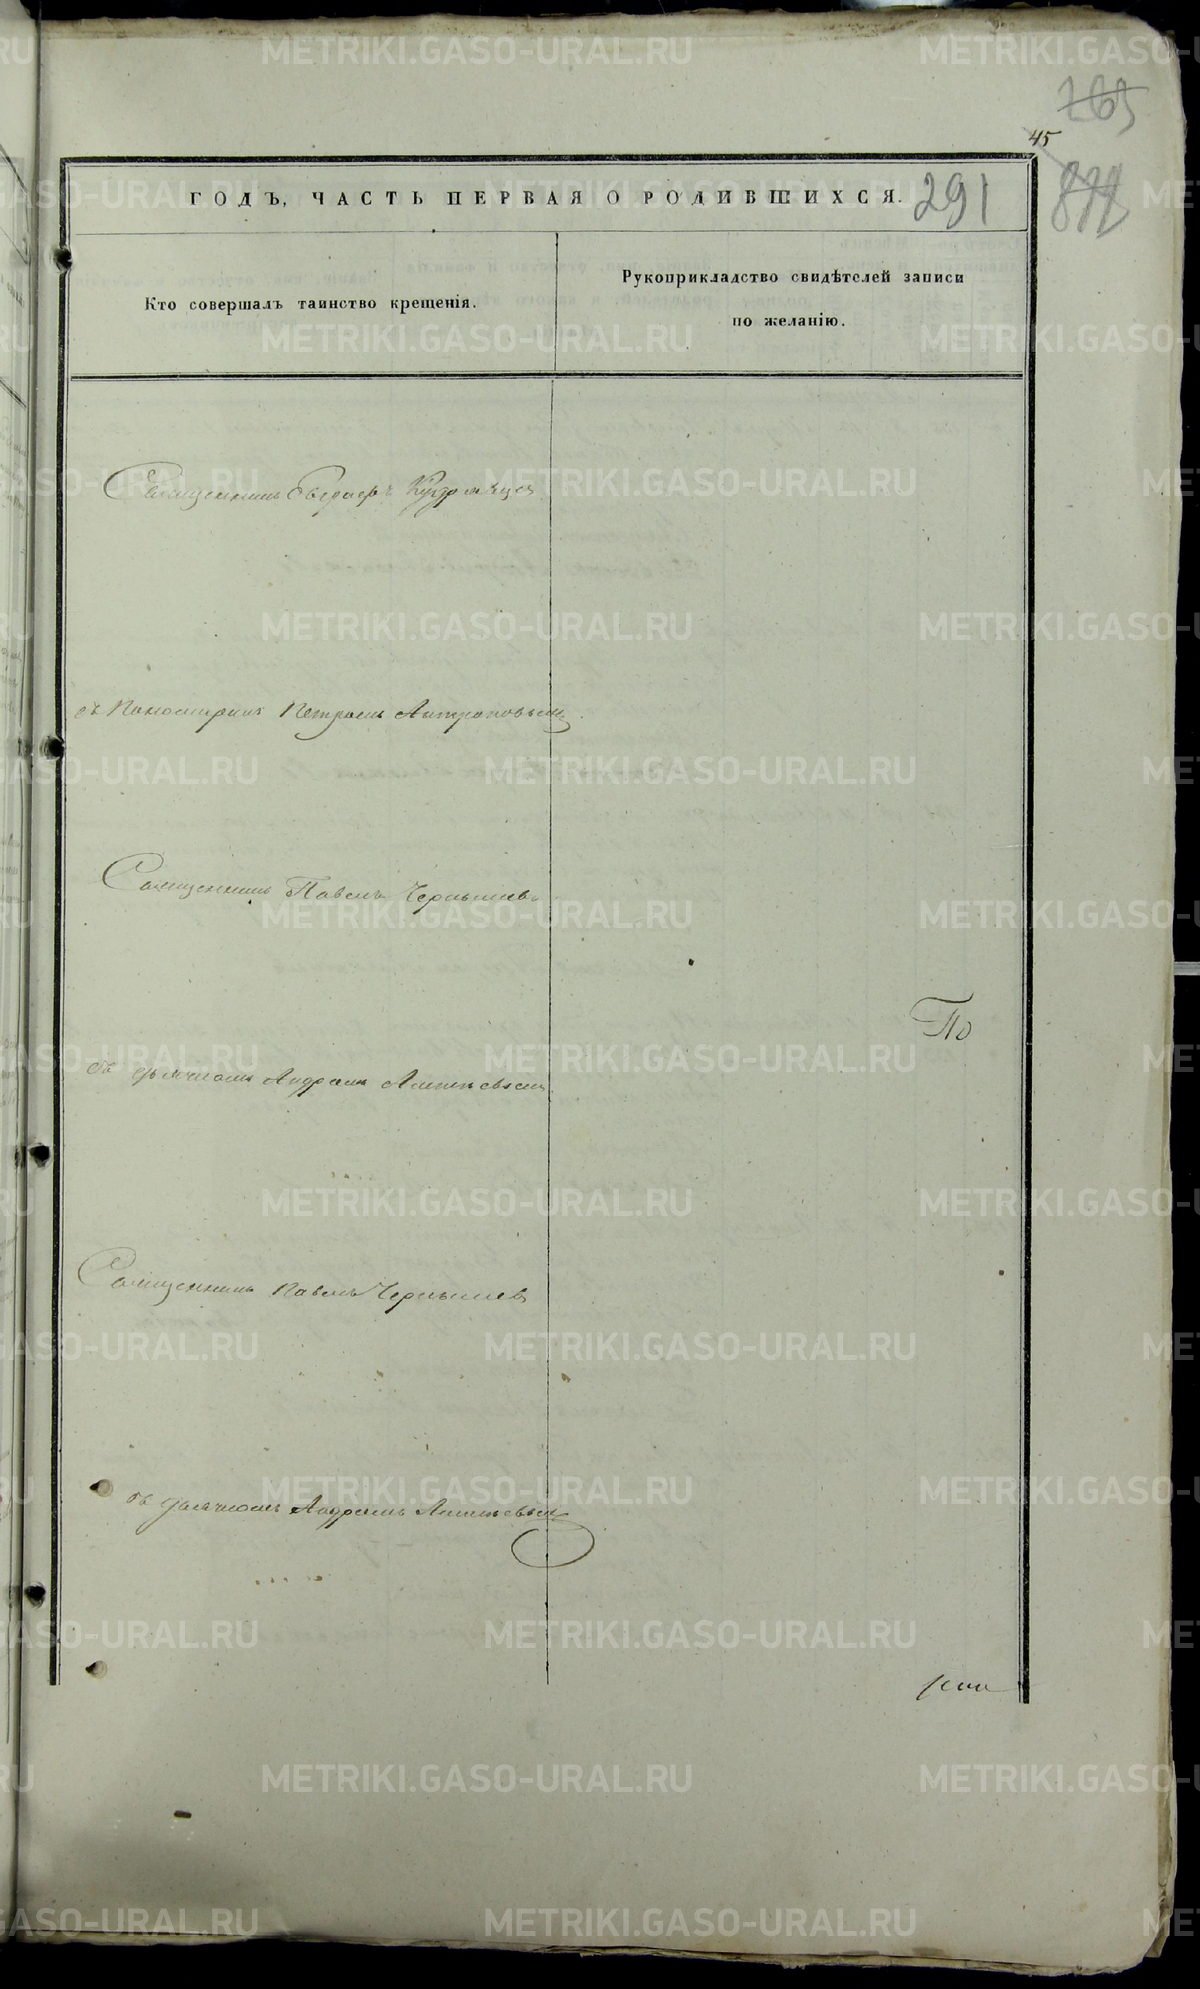 265
45
291
ГОДЪ, ЧАСТЬ ПЕРВАЯ О РОДИВШИХСЯ.
Кто совершалъ таинство крещенія.
Рукоприкладство свидѣтелей записи
по желанію.
Священникъ Кудрявцев
съ Петромъ Антроповымъ
Священникъ Павелъ Чернышевъ
По
съ дьячкомъ Андреемъ
Священникъ Павелъ Чернышев
съ дьячкомъ Андреемъ
METRIKI.GASO-URAL.RU